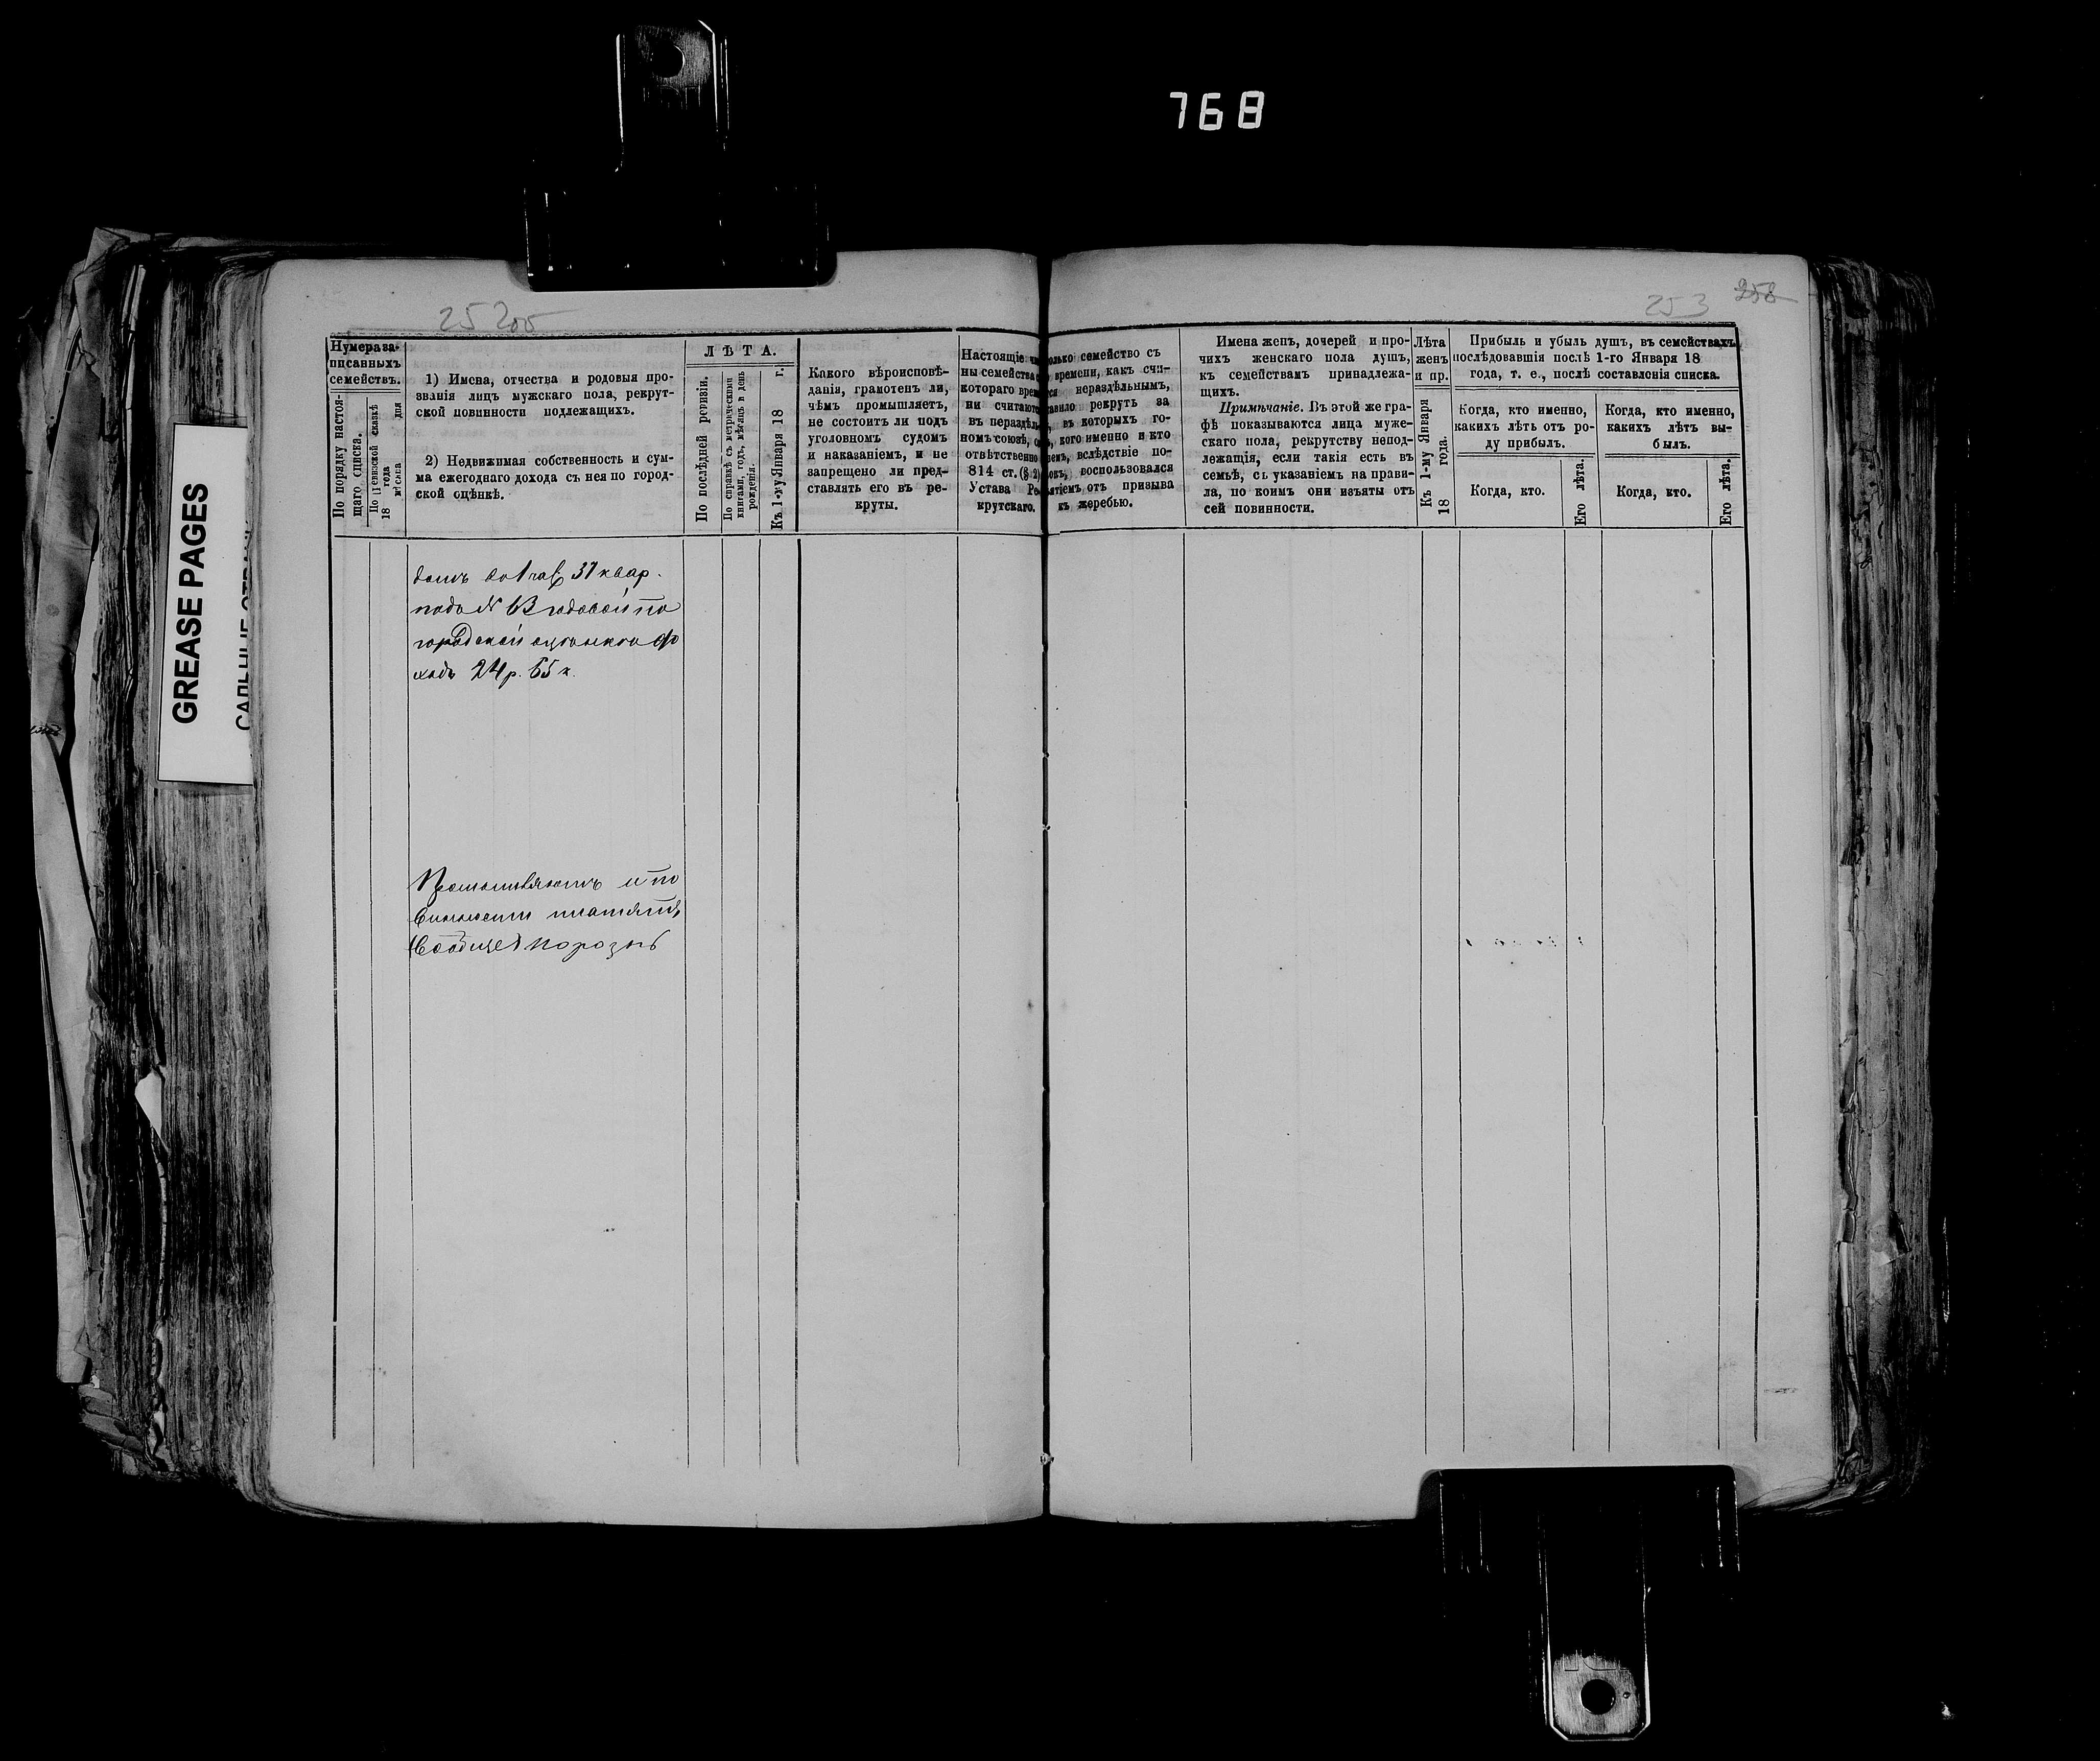 768
253
258
Нумера за-
писанныхъ
семействъ.
По порядку настоя-
щаго списка.
По ревизской сказкѣ
18 года
мѣсяца дня
1) Имена, отчества и родовыя про-
званія лицъ мужскаго пола, рекрут-
ской повинности подлежащихъ.
2) Недвижимая собственность и сум-
ма ежегоднаго дохода съ нея по город-
ской оцѣнкѣ.
ЛѢТА.
По послѣдней ревизіи.
По справкѣ съ метрическими
книгами, годъ, мѣсяцъ и день
рожденія.
Къ 1-му Января 18 г.
Какого вѣроисповѣ-
данія, грамотенъ ли,
чѣмъ промышляетъ,
не состоитъ ли подъ
уголовномъ судомъ
и наказаніемъ, и не
запрещено ли пред-
ставлять его въ ре-
круты.
Настоящіе
ны семейства
котораго
ни считают
въ нераздѣл
номъ союзѣ,
отвѣтственно
814 ст. (§ 2)
Устава Ре-
крутскаго.
семейство съ
времени, какъ счи-
нераздѣльнымъ,
рекрутъ за
въ которыхъ го-
кого именно и кто
вслѣдствіе по-
воспользовался
отъ призыва
къ жеребью.
Имена женъ, дочерей и про-
чихъ женскаго пола душъ,
къ семействамъ принадлежа-
щихъ.
Примѣчаніе. Въ этой же гра-
фѣ показываются лица муже-
скаго пола, рекрутству непод-
лежащія, если такія есть въ
семьѣ, съ указаніемъ на прави-
ла, по коимъ они изъяты отъ
сей повинности.
Лѣта
женъ
и пр.
Къ 1-му Января
18 года.
Прибыль и убыль душъ, въ семействахъ
послѣдовавшія послѣ 1-го Января 18
года, т. е., послѣ составленія списка.
Когда, кто именно,
какихъ лѣтъ отъ ро-
ду прибылъ.
Когда, кто.
Его лѣта.
Когда, кто именно,
какихъ лѣтъ вы-
былъ.
Когда, кто.
Его лѣта.
домъ во 1 час. 37 квар.
подъ № 13 годовой по
городской оцѣнкѣ до
ходъ 24 р. 65 к.
Промышляютъ и по
винности платятъ
(сообще) порознь
GREASE PAGES